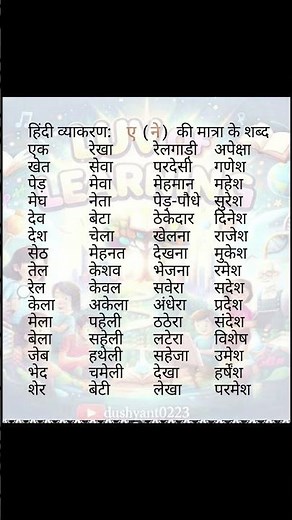 हिंदी व्याकरण: ए (ने) की मात्रा के शब्द
एक रेखा रेलगाड़ी अपेक्षा
खेत सेवा परदेसी गणेश
पेड़ मेवा मेहमान महेश
मेघ नेता पेड़-पौधे सुरेश
देव बेटा ठेकेदार दिनेश
देश चेला खेलना राजेश
सेठ मेहनत देखना मुकेश
तेल केशव भेजना रमेश
रेल केवल सवेरा सदेश
केला अकेला अंधेरा प्रदेश
मेला पहेली ठठेरा संदेश
बेला सहेली लटेरा विशेष
जेब हथेली सहेजा उमेश
भेद चमेली देखा हर्षेश
शेर बेटी लेखा परमेश
dushyant0223